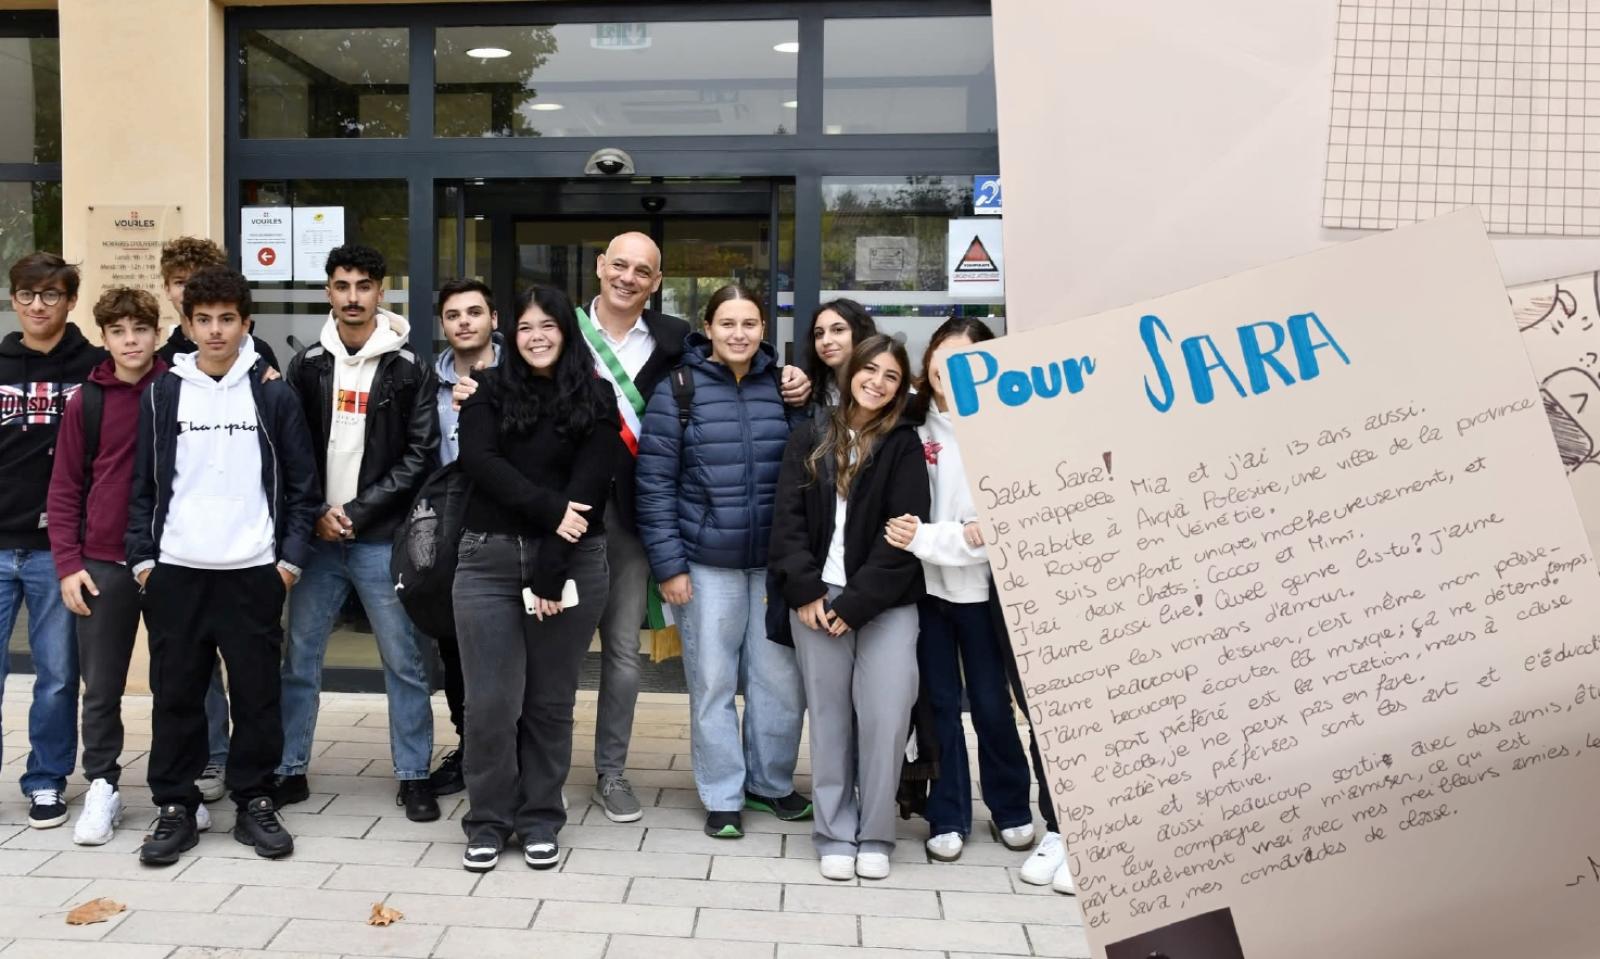 VOURLES
Lundi
Mardi
Mercredi
VOURLES
LONSDA
Champion
Pour SARA
Salut Sara!
je m'appelle Mia et j'ai 13 ans aussi.
J'habite à Arquà Polesine, une ville de la province
de Rovigo en Vénétie.
Je suis enfant unique, malheureusement, et
j'ai deux chats: Cocco et Mimì.
J'aime aussi lire! Quel genre lis-tu? J'aime
beaucoup les romans d'amour.
J'aime beaucoup dessiner, c'est même mon passe-
temps.
J'aime beaucoup écouter la musique; ça me détend.
Mon sport préféré est la natation, mais à cause
de l'école, je ne peux pas en faire.
Mes matières préférées sont les art et l'éducati
physide et sportive.
J'aime aussi beaucoup sortir avec des amis, êt
en leur compagne et m'amuser, ce qui est
particulièrement vrai avec mes meilleurs amies, Le
et Sara, mes camarades de classe.